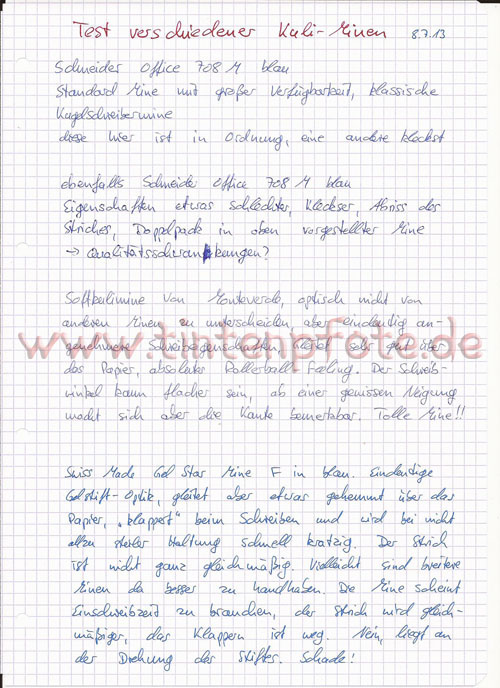 Test verschiedener Kuli-Minen 8.7.13
Schneider Office 708 M blau
Standard Mine mit großer Verfügbarkeit, klassische
Kugelschreibermine
diese hier ist in Ordnung, eine andere kleckst
ebenfalls Schneider Office 708 M blau
Eigenschaften etwas schlechter, Kleckser, Abriss des
Striches, Doppelpack in oben vorgestellter Mine
→ Qualitätsschwankungen?
Softkulimine von Monteverde, optisch nicht von
anderen Minen zu unterscheiden, aber eindeutig an-
genehmere Schreibeigenschaften, gleitet sehr gut über
www.tintenpfote.de
das Papier, absolutes Rollerball Feeling. Der Schreib-
winkel kann flacher sein, ab einer gewissen Neigung
macht sich aber die Kante bemerkbar. Tolle Mine!!
Swiss Made Gel Star Mine F in blau. Eindeutige
Gelstift-Optik, gleitet aber etwas gehemmt über das
Papier, „klappert" beim Schreiben und wird bei nicht
allzu steiler Haltung schnell kratzig. Der Strich
ist nicht ganz gleichmäßig. Vielleicht sind breitere
Minen da besser zu handhaben. Die Mine scheint
Einschreibzeit zu brauchen, der Strich wird gleich-
mäßiger, das Klappern ist weg. Nein, liegt an
der Drehung des Stiftes. Schade!